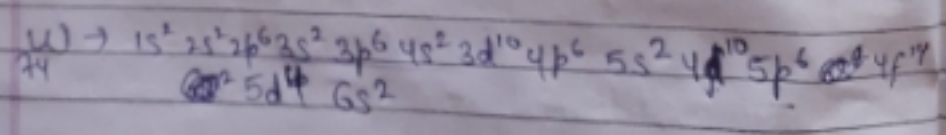 W → 1s² 2s² 2p⁶ 3s² 3p⁶ 4s² 3d¹⁰ 4p⁶ 5s² 4d¹⁰ 5p⁶ 4f¹⁴
74
5d⁴ 6s²